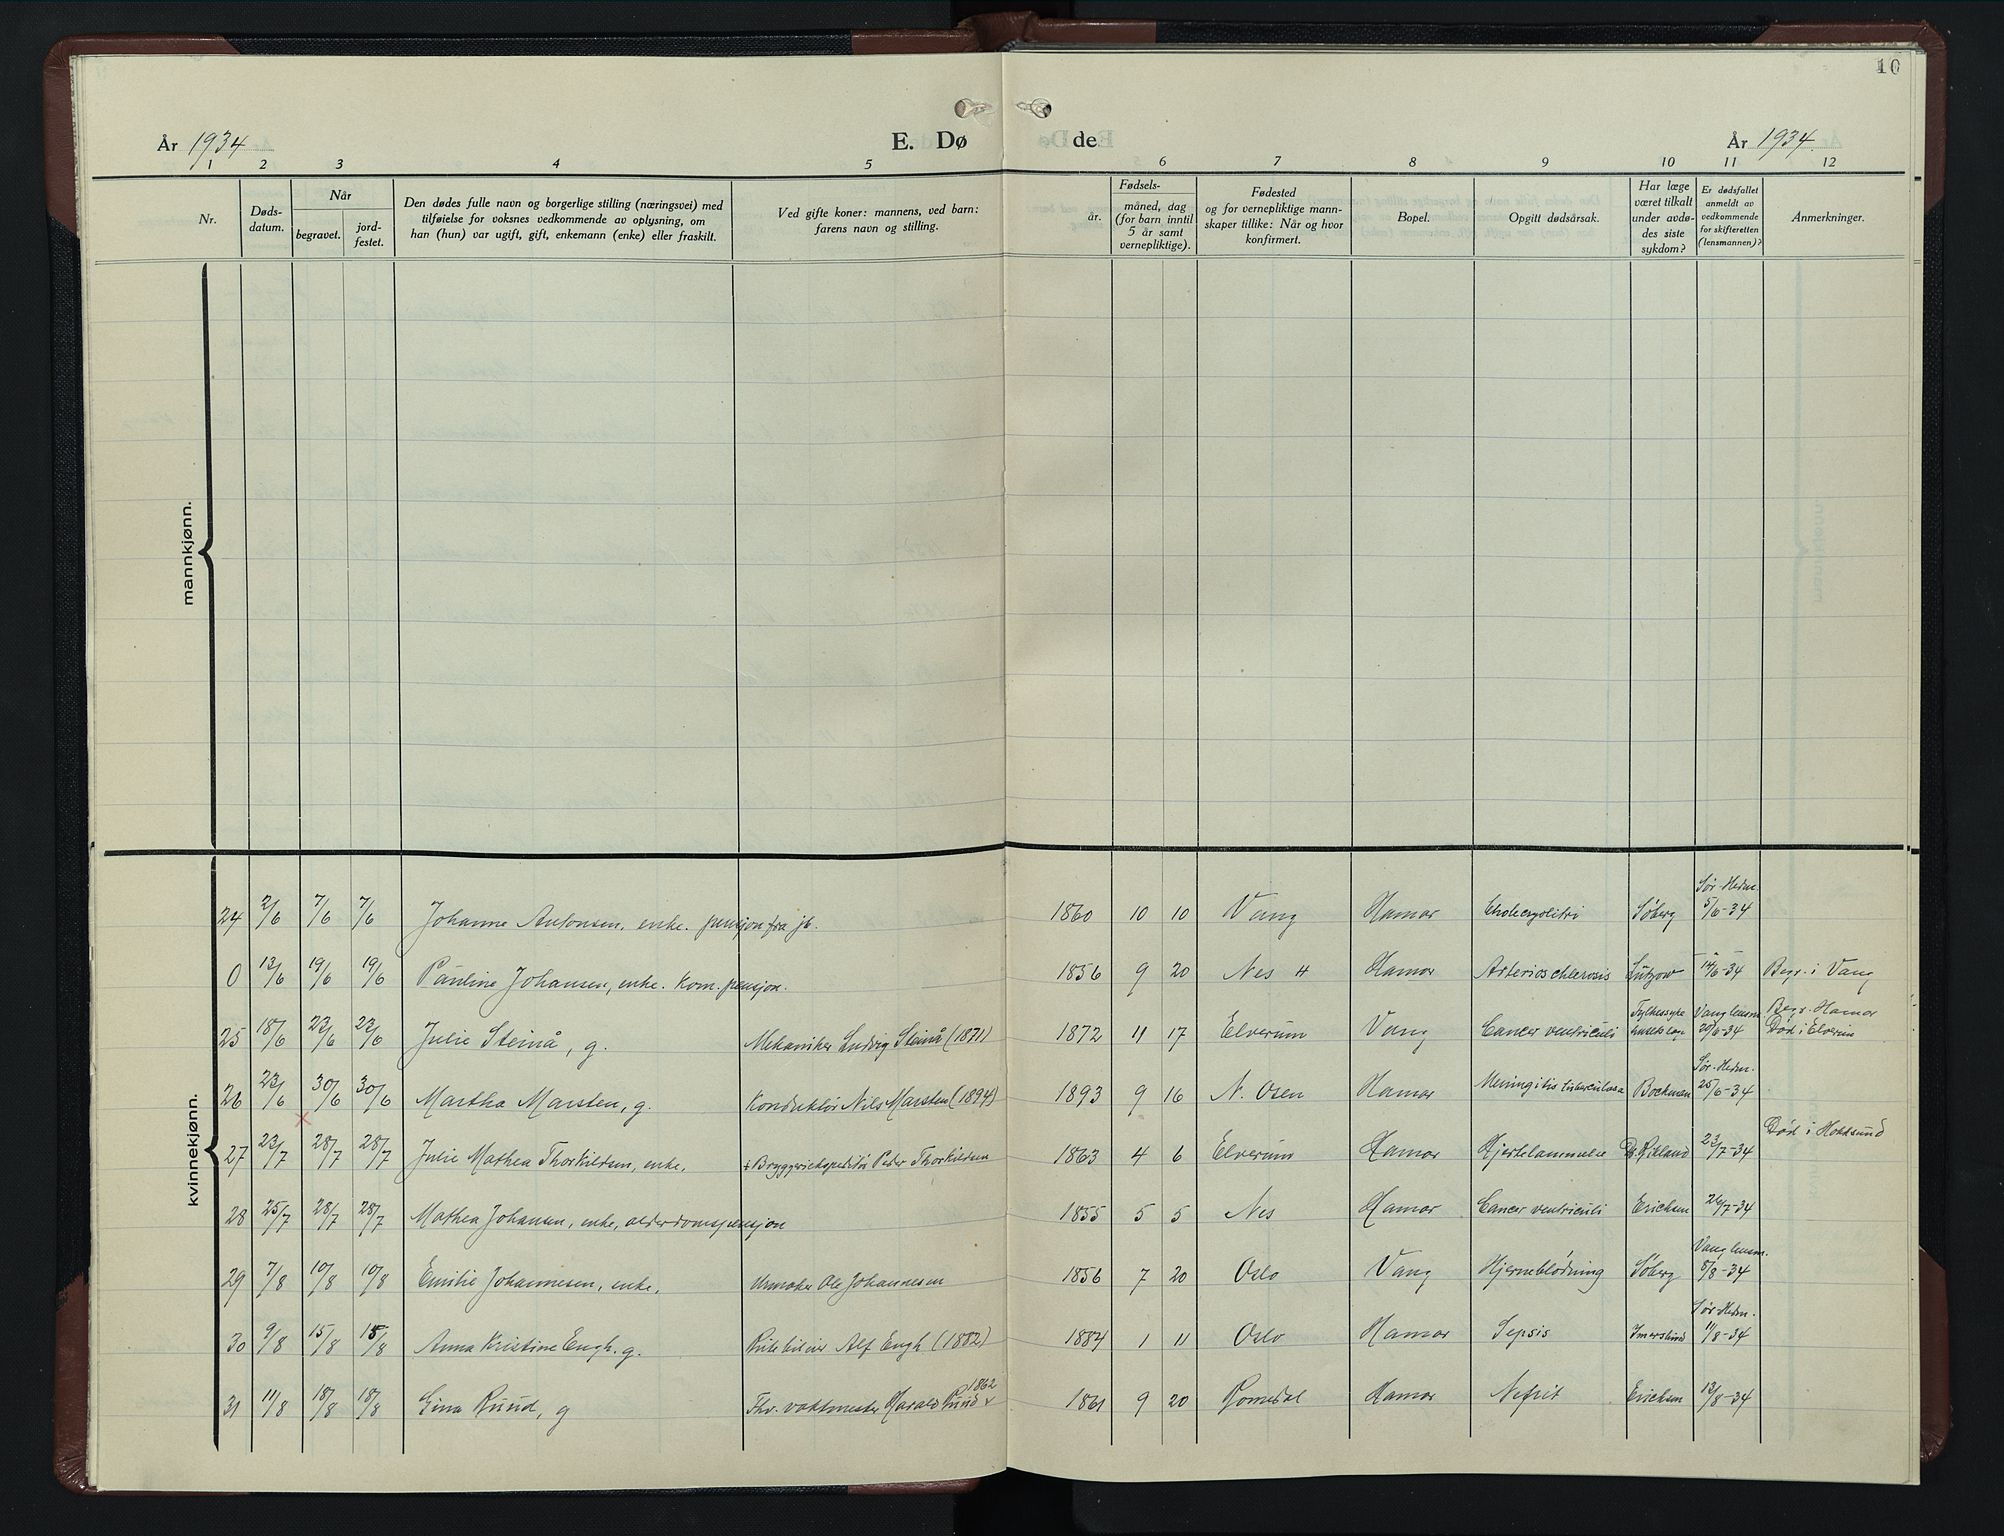 10
År 1934 E. Dø de. År 1934
1 2 3 4 5 6 7 8 9 10 11 12
Nr.
Døds-
datum.
Når
begravet.
jord-
festet.
Den dødes fulle navn og borgerlige stilling (næringsvei) med
tilføielse for voksnes vedkommende av oplysning, om
han (hun) var ugift, gift, enkemann (enke) eller fraskilt.
Ved gifte koner: mannens, ved barn:
farens navn og stilling.
Fødsels-
år.
måned, dag
(for barn inntil
5 år samt
vernepliktige).
Fødested
og for vernepliktige mann-
skaper tillike: Når og hvor
konfirmert.
Bopel.
Opgitt dødsårsak.
Har læge
været tilkalt
under avdø-
des siste
sykdom?
Er dødsfallet
anmeldt av
vedkommende
for skifteretten
(lensmannen)?
Anmerkninger.
mannkjønn.
kvinnekjønn.
Sør-Hedm.
24 2/6 7/6 7/6 Johanne Antonsen, enke. pensjon fra jb. 1860 10 10 Vang Hamar Cholecystitri Søberg 5/6-34
0 13/6 19/6 19/6 Pauline Johansen, enke. Kom. pensjon. 1856 9 20 Nes H Hamar Arterioschlerosis Lützow 14/6-34 Begr. i Vang
Fylkessyke Vang lensm. Begr. Hamar
25 18/6 23/6 23/6 Julie Steinå, g. Mekaniker Ludvig Steinå (1871) 1872 11 17 Elverum Vang Cancer ventriculi 20/6-34 Død i Elverum
Sør-Hedm.
26 23/6 30/6 30/6 Martha Marsten, g. Konduktør Nils Marsten (1894) 1893 9 16 N. Osen Hamar Meningitis tuberculosa Bockman 25/6-34
Død i Hokksund
27 23/7 28/7 28/7 Julie Mathea Thorkildsen, enke. + Bryggeriekspeditør Peder Thorkildsen 1863 4 6 Elverum Hamar Hjertelammelse 23/7-34
28 25/7 28/7 28/7 Mathea Johansen, enke, alderdomspensjon 1855 5 5 Nes Hamar Cancer ventriculi Erichsen 26/7-34
Vang lensm.
29 7/8 10/8 10/8 Emilie Johannesen, enke. Urmaker Ole Johannesen 1856 7 20 Oslo Vang Hjerneblødning Søberg 8/8-34
Sør-Hedm.
30 9/8 15/8 15/8 Anna Kristine Engh. g. Alf Engh (1882) 1884 1 11 Oslo Hamar Sepsis Imerslund 11/8-34
1862
31 11/8 18/8 18/8 Gina Ruud, g Fhv. vaktmester Harald Ruud 1861 9 20 Romedal Hamar Nefrit Erichsen 13/8-34